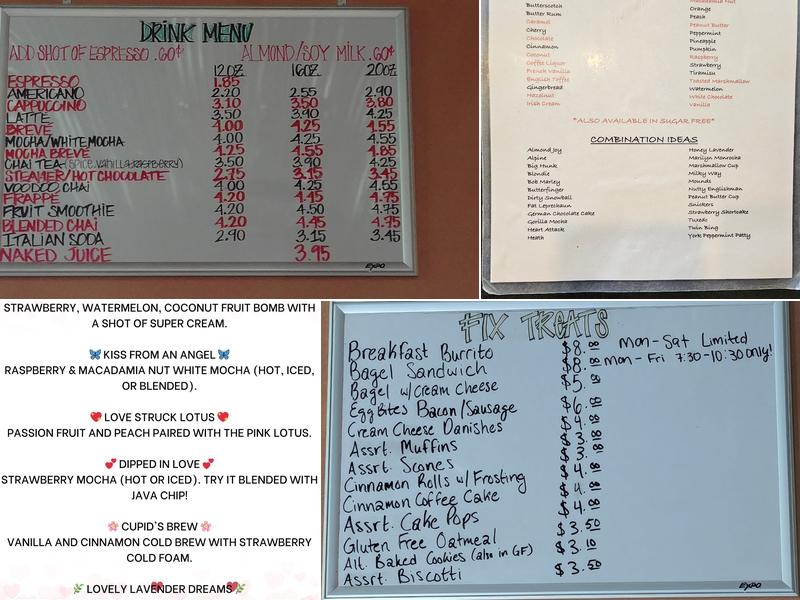 DRINK MENU
ADD SHOT OF ESPRESSO .60¢ ALMOND/SOY MILK .60¢
12OZ. 16OZ. 20OZ
ESPRESSO 1.85
AMERICANO 2.20 2.55 2.90
CAPPUCCINO 3.10 3.50 3.80
LATTE 3.50 3.90 4.25
BREVE 4.00 4.25 4.55
MOCHA/WHITE MOCHA 4.00 4.25 4.55
MOCHA BREVE 4.25 4.55 4.85
CHAI TEA (SPICE, VANILLA, RASPBERRY) 3.50 3.90 4.25
STEAMER/HOT CHOCOLATE 2.75 3.15 3.45
VOODOO CHAI 4.00 4.25 4.55
FRAPPE 4.20 4.45 4.75
FRUIT SMOOTHIE 4.20 4.50 4.75
BLENDED CHAI 4.20 4.45 4.75
ITALIAN SODA 2.90 3.15 3.45
NAKED JUICE 3.95
EXPO
Butterscotch
Butter Rum
Caramel
Cherry
Chocolate
Cinnamon
Coconut
Coffee Liquor
French Vanilla
English Toffee
Gingerbread
Hazelnut
Irish Cream
Macadamia Nut
Orange
Peach
Peanut Butter
Peppermint
Pineapple
Pumpkin
Raspberry
Strawberry
Tiramisu
Toasted Marshmallow
Watermelon
White Chocolate
Vanilla
*ALSO AVAILABLE IN SUGAR FREE*
COMBINATION IDEAS
Almond Joy
Alpine
Big Hunk
Blondie
Bob Marley
Butterfinger
Dirty Snowball
Fat Leprechaun
German Chocolate Cake
Gorilla Mocha
Heart Attack
Heath
Honey Lavender
Marilyn Monrocha
Marshmallow Cup
Milky Way
Mounds
Nutty Englishman
Peanut Butter Cup
Snickers
Strawberry Shortcake
Tuxedo
Twin Bing
York Peppermint Patty
STRAWBERRY, WATERMELON, COCONUT FRUIT BOMB WITH
A SHOT OF SUPER CREAM.
🦋 KISS FROM AN ANGEL 🦋
RASPBERRY & MACADAMIA NUT WHITE MOCHA (HOT, ICED,
OR BLENDED).
💝 LOVE STRUCK LOTUS 💝
PASSION FRUIT AND PEACH PAIRED WITH THE PINK LOTUS.
💕 DIPPED IN LOVE 💕
STRAWBERRY MOCHA (HOT OR ICED). TRY IT BLENDED WITH
JAVA CHIP!
🌸 CUPID'S BREW 🌸
VANILLA AND CINNAMON COLD BREW WITH STRAWBERRY
COLD FOAM.
🌿 LOVELY LAVENDER DREAMS 🌿
FIX TREATS
Breakfast Burrito $8.00 Mon-Sat Limited
Bagel Sandwich $8.00 Mon-Fri 7:30-10:30 only!
Bagel w/Cream Cheese $5.00
Egg Bites Bacon/Sausage $6.00
Cream Cheese Danishes $4.00
Assrt. Muffins $3.00
Assrt. Scones $3.00
Cinnamon Rolls w/Frosting $4.00
Cinnamon Coffee Cake $4.00
Assrt. Cake Pops $4.00
Gluten Free Oatmeal $3.50
Alt. Baked Cookies (also in GF) $3.10
Assrt. Biscotti $3.50
EXPO